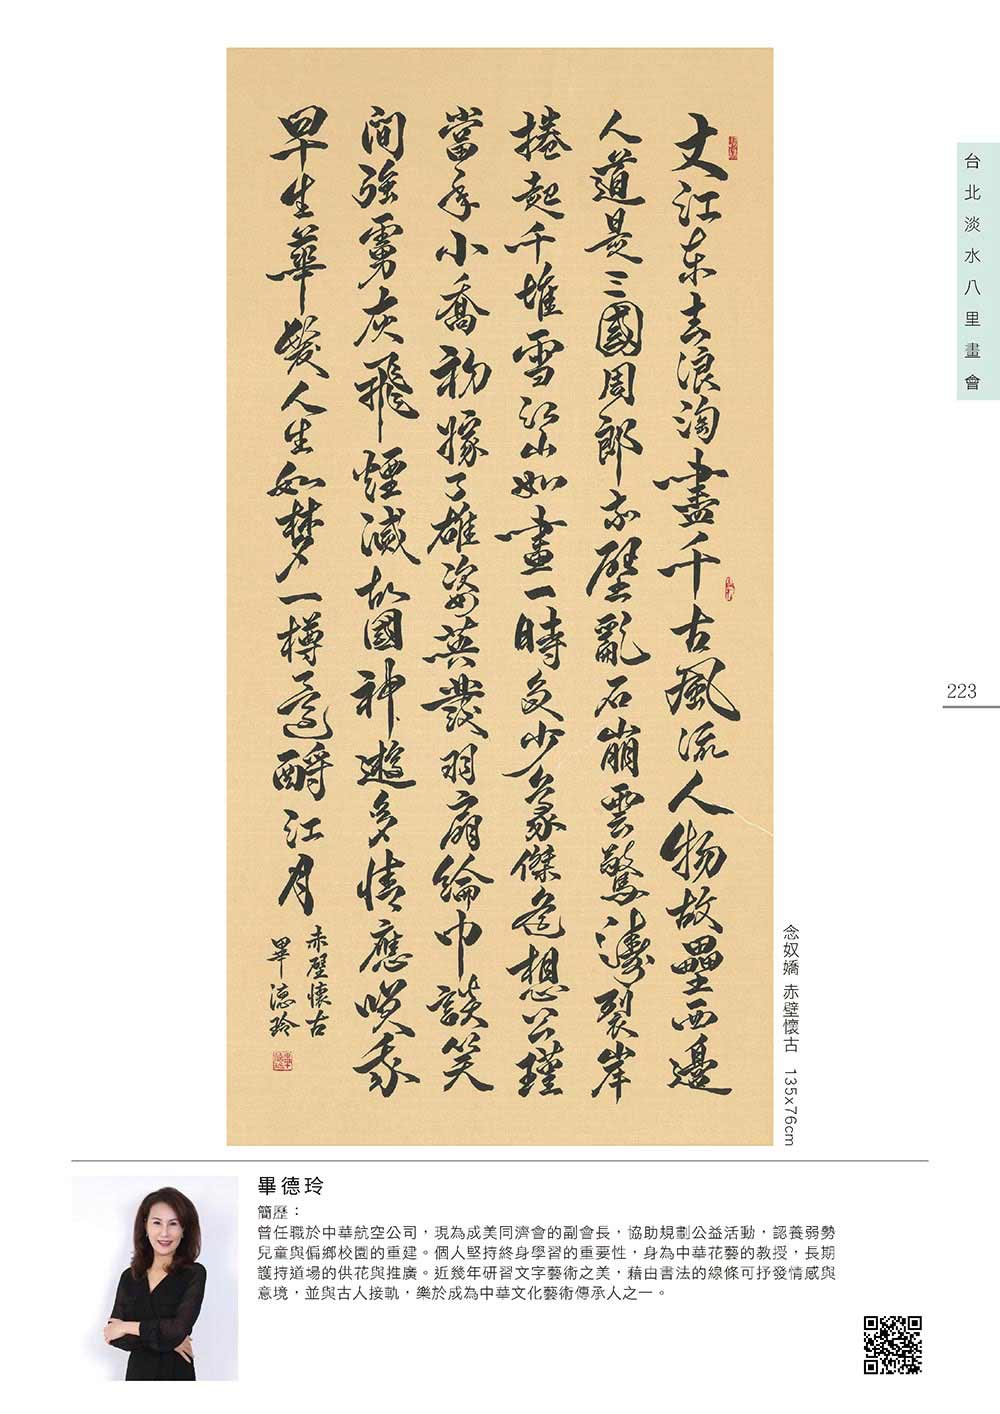 大江東去浪淘盡千古風流人物故壘西邊
人道是三國周郎赤壁亂石崩雲驚濤裂岸
捲起千堆雪江山如畫一時多少豪傑遙想公瑾
當年小喬初嫁了雄姿英發羽扇綸巾談笑
間強虜灰飛煙滅故國神遊多情應笑我
早生華髮人生如夢一樽還酹江月
赤壁懷古
畢德玲
台北淡水八里畫會
223
念奴嬌 赤壁懷古 135x76cm
畢德玲
簡歷：
曾任職於中華航空公司，現為成美同濟會的副會長，協助規劃公益活動，認養弱勢
兒童與偏鄉校園的重建。個人堅持終身學習的重要性，身為中華花藝的教授，長期
護持道場的供花與推廣。近幾年研習文字藝術之美，藉由書法的線條可抒發情感與
意境，並與古人接軌，樂於成為中華文化藝術傳承人之一。